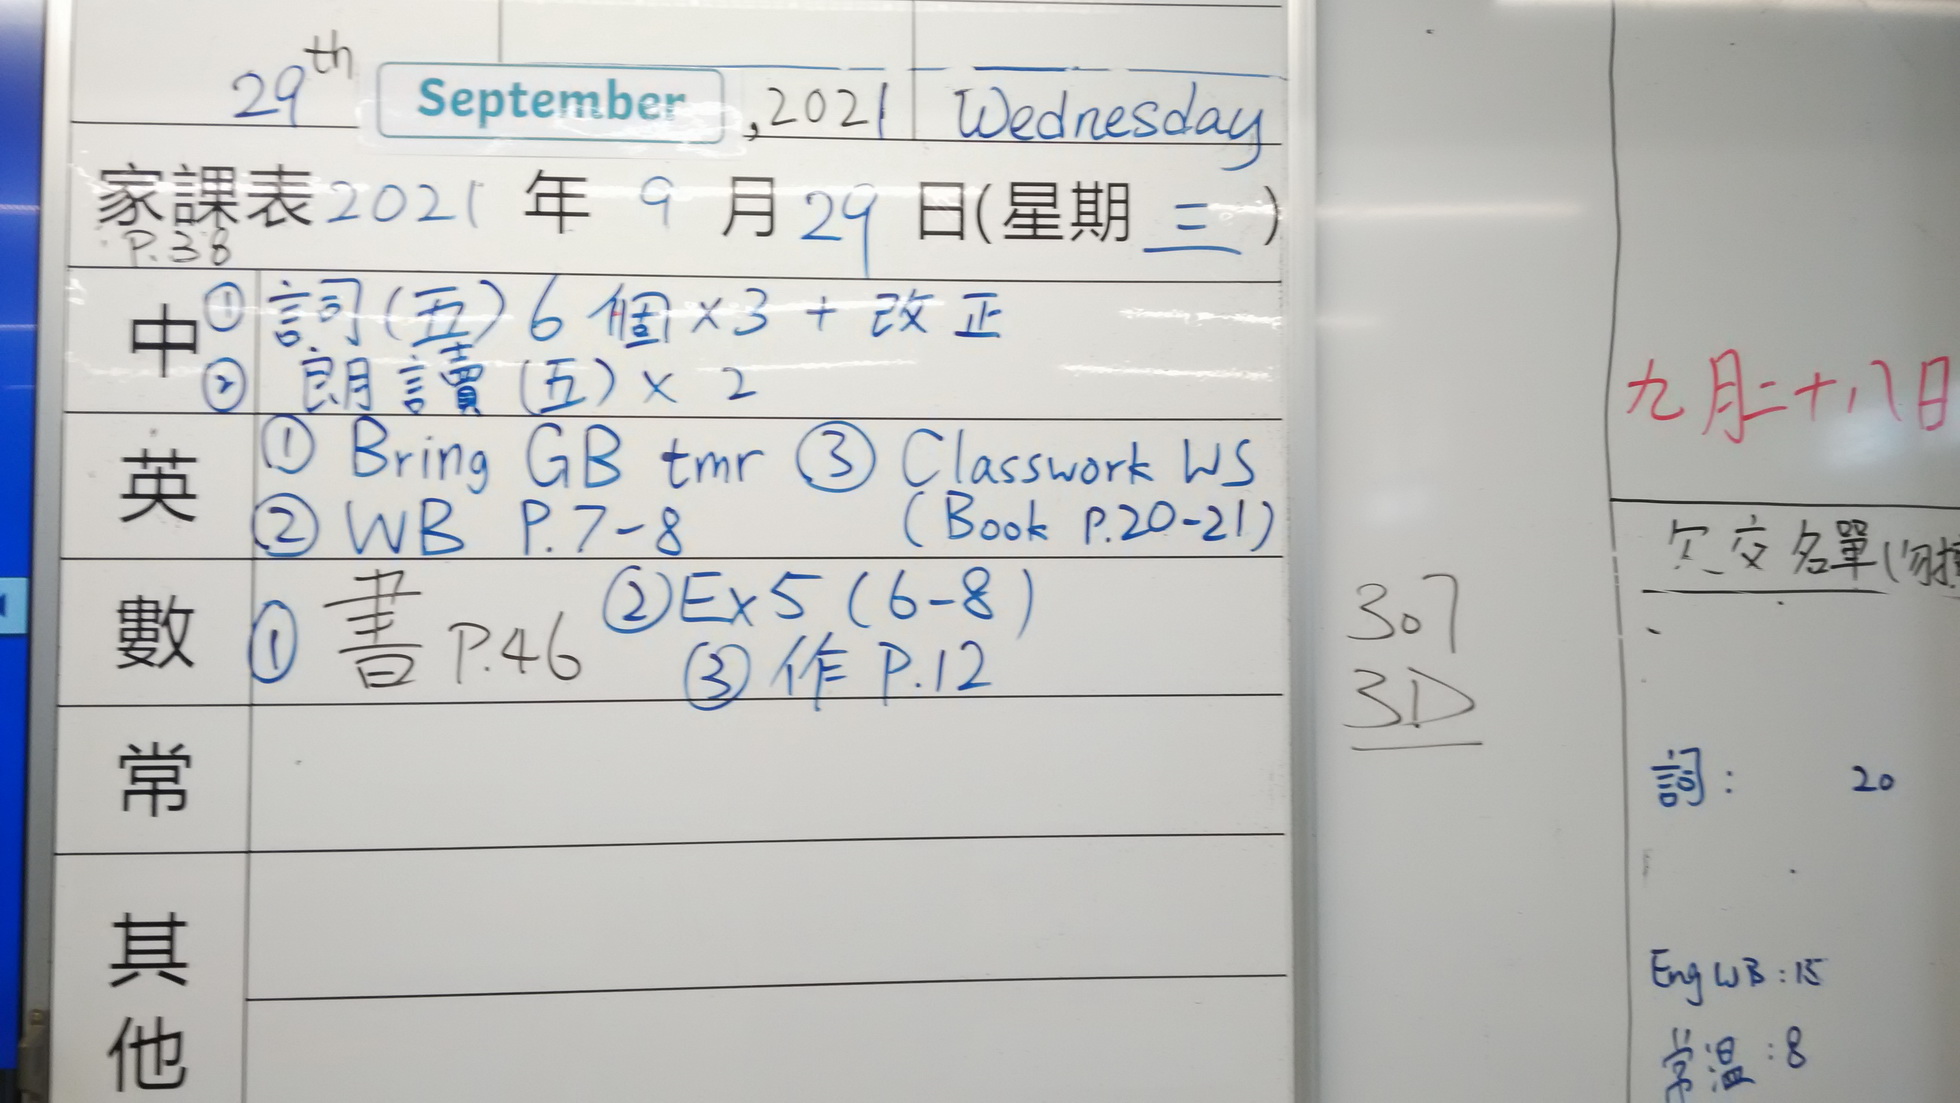 29th September, 2021 Wednesday
家課表 2021 年 9 月 29 日(星期 三 )
P.38
中 ① 詞(五) 6 個 x3 + 改正
② 朗讀 (五) x 2
英 ① Bring GB tmr ③ Classwork WS
② WB P.7-8 (Book P.20-21)
數 ① 書 P.46 ② Ex 5 (6-8)
③ 作 P.12
常
其
他
307
3D
九月二十八日
欠交名單(勿
詞: 20
Eng WB : 15
常溫 : 8